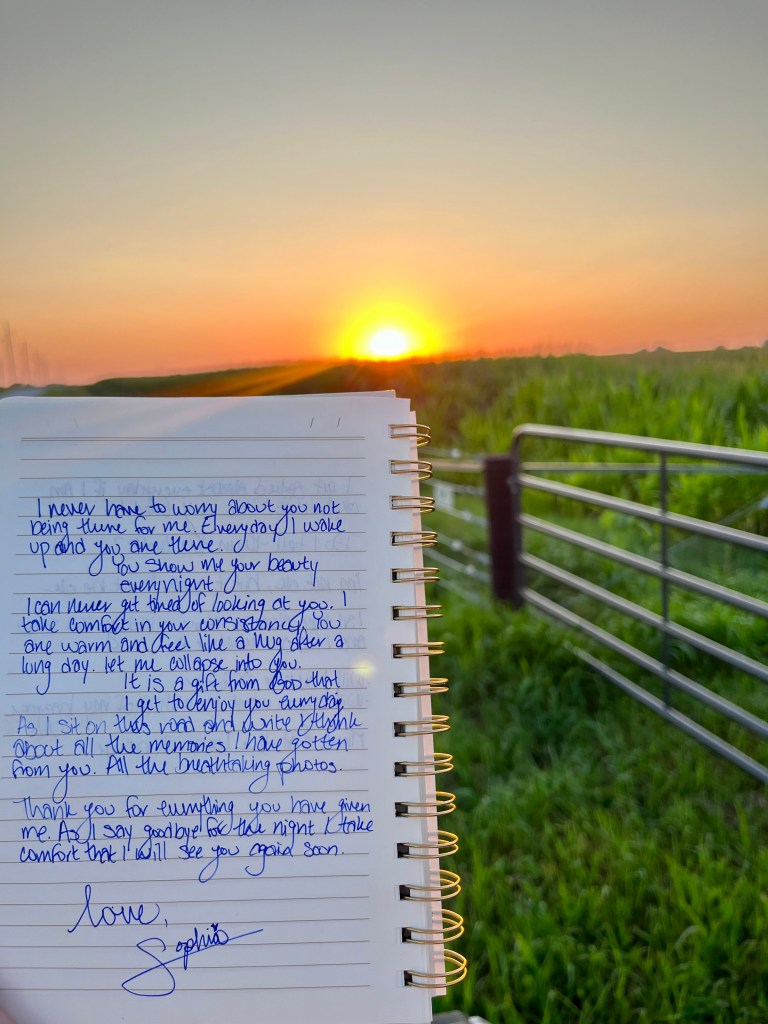 I never have to worry about you not
being there for me. Everyday I wake
up and you are there.
You show me your beauty
everynight
I can never get tired of looking at you. I
take comfort in your consistancy. You
are warm and feel like a hug after a
long day. let me collapse into you.
It is a gift from God that
I get to enjoy you everyday.
As I sit on this road and write I think
about all the memories I have gotten
from you. All the breathtaking photos.
Thank you for everything you have given
me. As I say goodbye for the night I take
comfort that I will see you again soon.
love,
Sophia